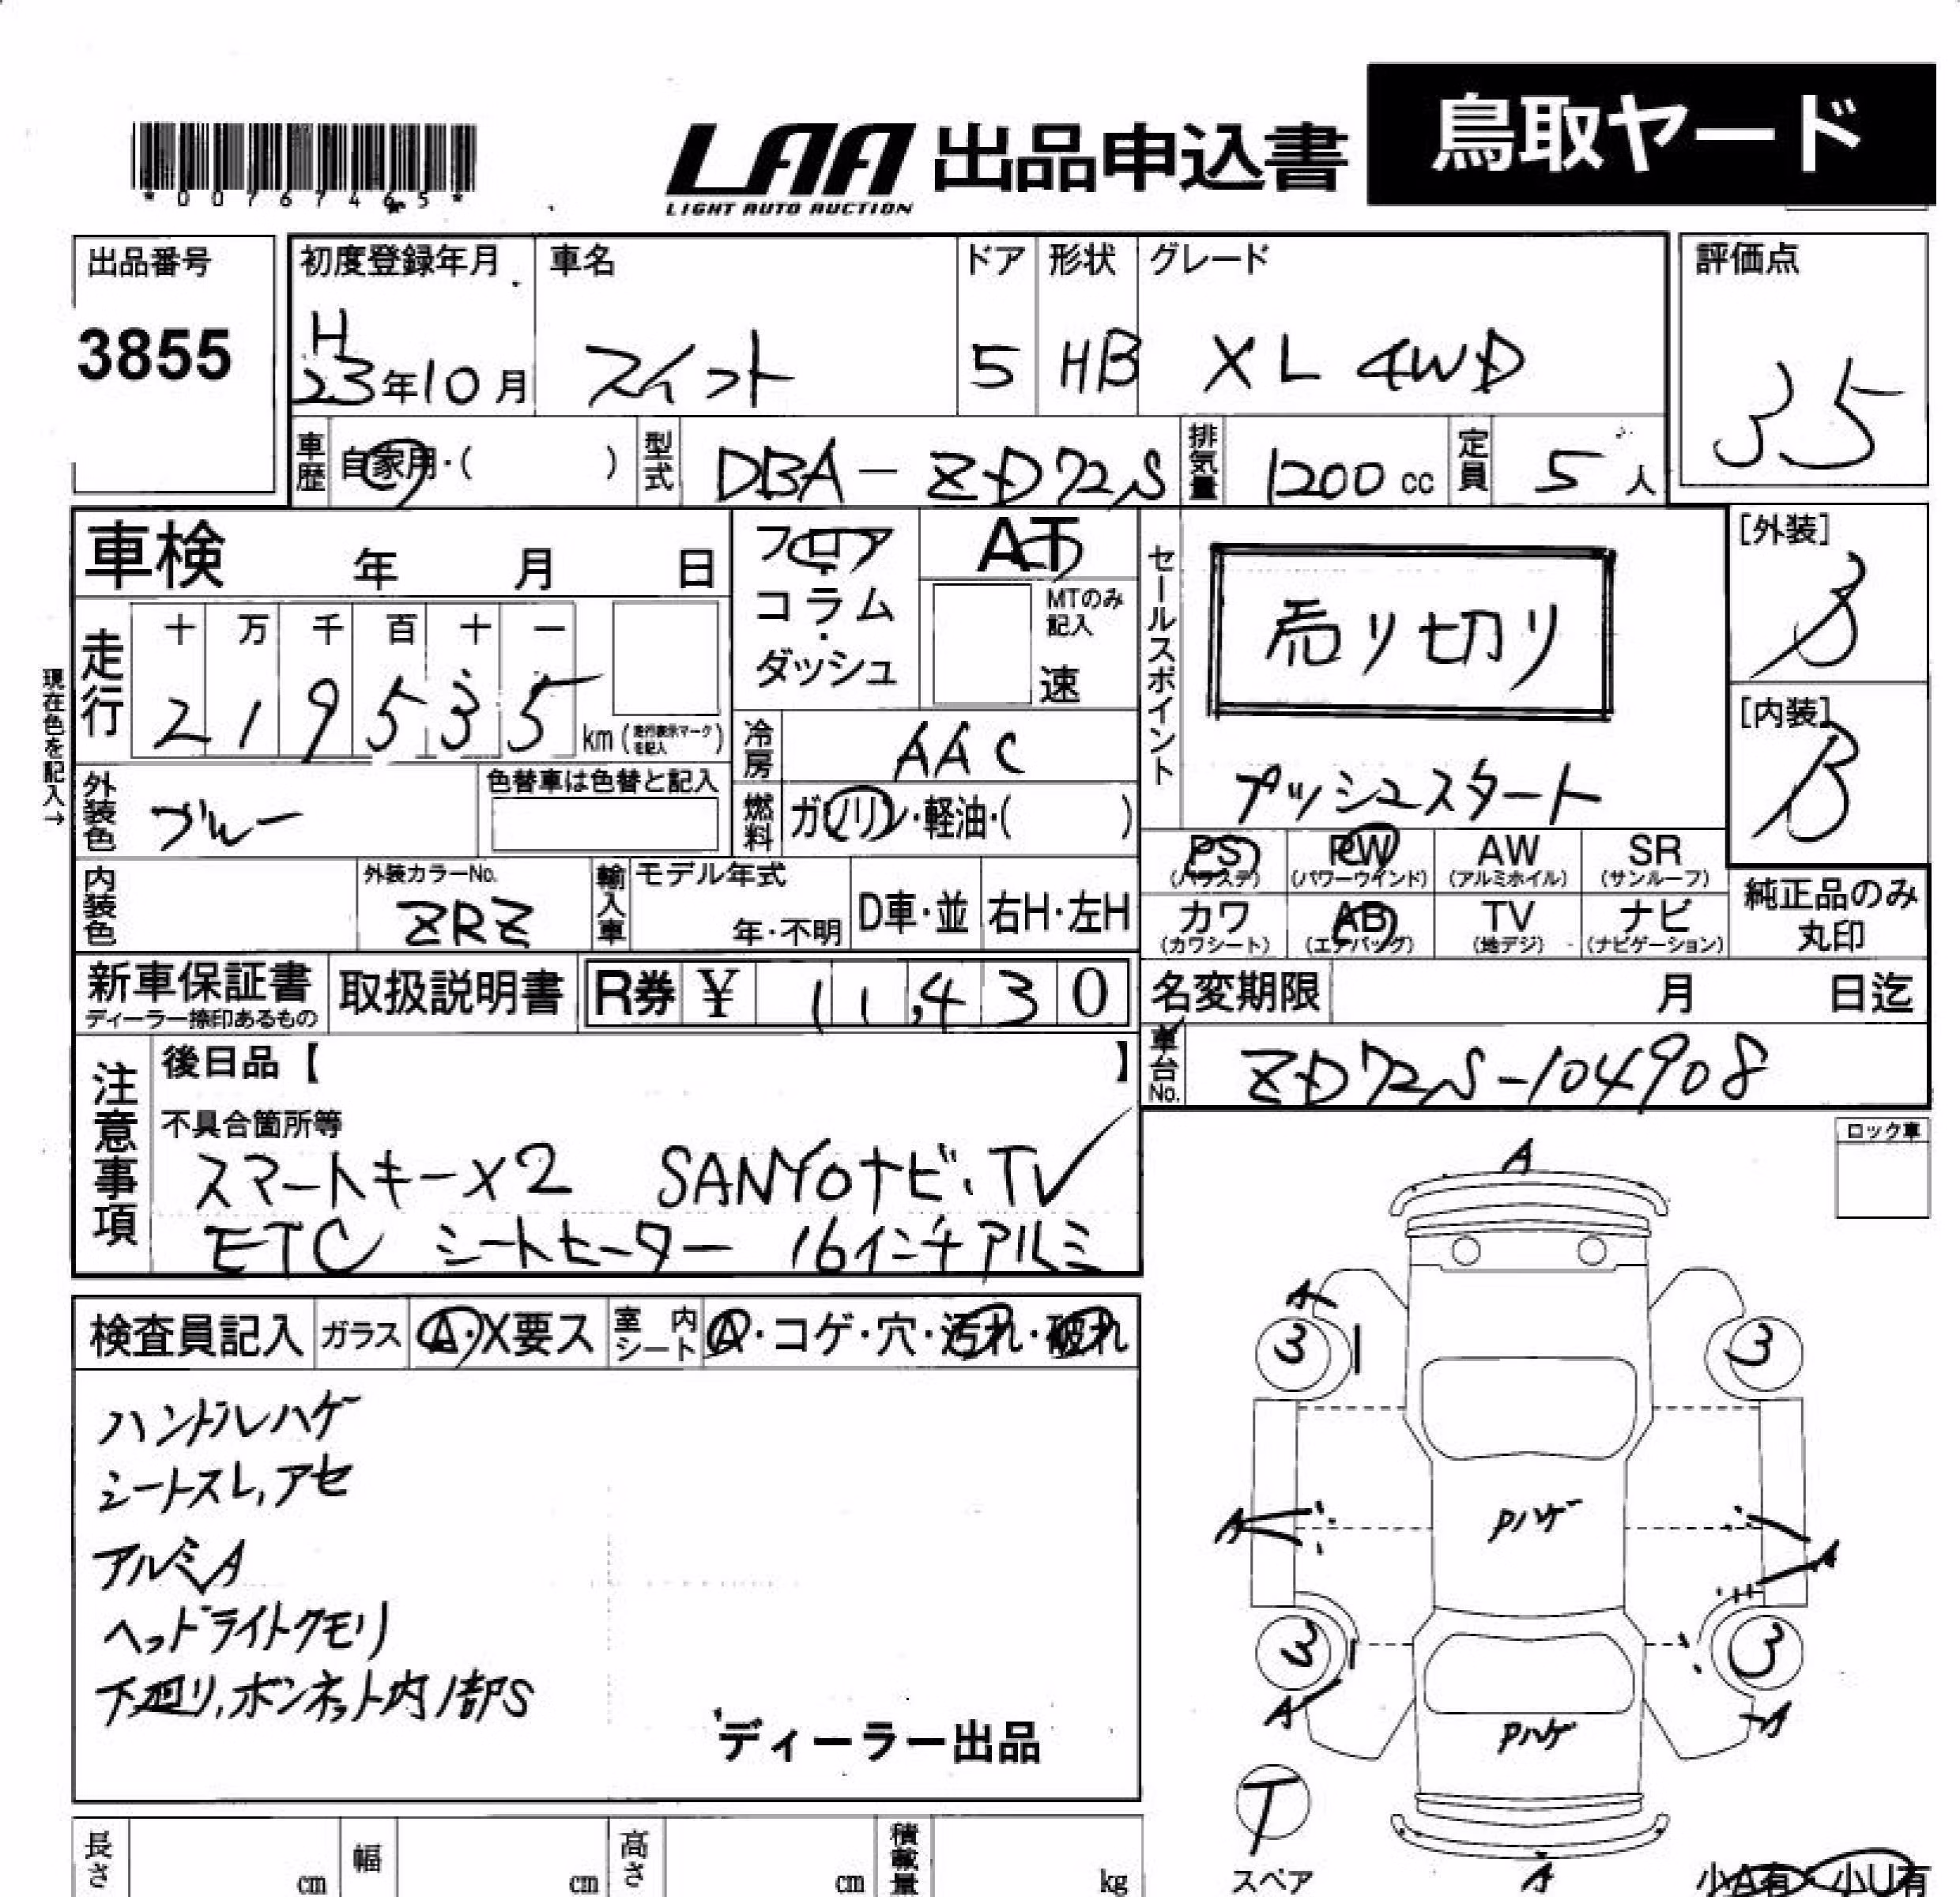 *00767465*
LAA 出品申込書 鳥取ヤード
LIGHT AUTO AUCTION
出品番号 初度登録年月 車名 ドア 形状 グレード 評価点
3855 H23年10月 スイフト 5 HB XL 4WD 3.5
車歴 自家用・( ) 型式 DBA-ZD72S 排気量 1200cc 定員 5人
車検 年 月 日 フロア・コラム・ダッシュ AT セールスポイント 売り切り [外装] B
MTのみ記入 速
現在色を記入→
走行 十 万 千 百 十 一
2 1 9 5 3 5 km (走行表示マークを記入)
冷房 AAC プッシュスタート [内装] B
外装色 ブルー 色替車は色替と記入 燃料 ガソリン・軽油・( )
PS PW AW SR
(パワステ) (パワーウインド) (アルミホイル) (サンルーフ)
内装色 外装カラーNo. ZRZ 輸入車 モデル年式 年・不明 D車・並 右H・左H
カワ AB TV ナビ 純正品のみ丸印
(カワシート) (エアバッグ) (地デジ) (ナビゲーション)
新車保証書 取扱説明書 R券 ¥ 11,430 名変期限 月 日迄
ディーラー捺印あるもの
車台No. ZD72S-104908
注意事項 後日品【 】
不具合箇所等 ロック車
スマートキーX2 SANYOナビ・TV
ETC シートヒーター 16インチアルミ
検査員記入 ガラス A・X要ス 室内シート A・コゲ・穴・汚れ・破れ
ハンドルハゲ
シートスレ,アセ
アルミA
ヘッドライトクモリ
下廻り,ボンネット内1部S
ディーラー出品
A
A
3 3
A Pハゲ A
3 3
A Pハゲ A
T
スペア A 小A有 小U有
長さ cm 幅 cm 高さ cm 積載量 kg